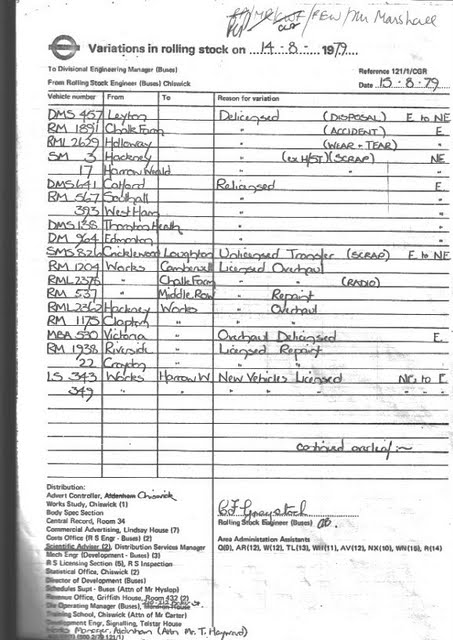 MR/CWF/FEW/Mr Marshall
Variations in rolling stock on 14-8- 1979
To Divisional Engineering Manager (Buses)
Reference 121/1/CGR
From Rolling Stock Engineer (Buses) Chiswick
Date 15-8-79
Vehicle number From To Reason for variation
DMS 457 Leyton Delicensed (DISPOSAL) E to NE
RM 1891 Chalk Farm " (ACCIDENT) E
RML 2629 Holloway " (WEAR + TEAR) "
SM 3 Hackney " (ex H/ST)(SCRAP) NE
17 Harrow Weald " " "
DMS 641 Catford Relicensed E
RM 567 Southall " "
393 West Ham " "
DMS 138 Thornton Heath " "
DM 964 Edmonton " "
SMS 826 Cricklewood Loughton Unlicensed Transfer (SCRAP) E to NE
RM 1204 Works Camberwell Licensed Overhaul
RML 2376 " Chalk Farm " " (RADIO)
RM 537 " Middle Row " Repaint
RML 2362 Hackney Works " Overhaul
RM 1175 Clapton " " "
MBA 530 Victoria " Overhaul Delicensed E
RM 1938 Riverside " Licensed Repaint
22 Croydon " " "
LS 343 Works Harrow W. New Vehicles Licensed NE to E
349 " " " "
continued overleaf :~
Distribution:
Advert Controller, Aldenham Chiswick
Works Study, Chiswick (1)
Body Spec Section
Central Record, Room 34
Commercial Advertising, Lindsay House (7)
Costs Office (R S Engr - Buses) (2)
Scientific Adviser (2), Distribution Services Manager
Mech Engr (Development - Buses) (3)
R S Licensing Section (5), R S Inspection
Statistical Office, Chiswick (2)
Director of Development (Buses)
Schedules Supt - Buses (Attn of Mr Hyslop)
Revenue Office, Griffith House, Room 432 (2)
Operating Manager (Buses),
Training School, Chiswick (Attn of Mr Carter)
Development Engr, Signalling, Telstar House
Works Manager, Aldenham (Attn Mr. T. Hayward)
C F Graystock
Rolling Stock Engineer (Buses)
Area Administration Assistants
Q(9), AR(12), W(12), TL(13), WH(11), AV(12), NX(10), WN(15), R(14)